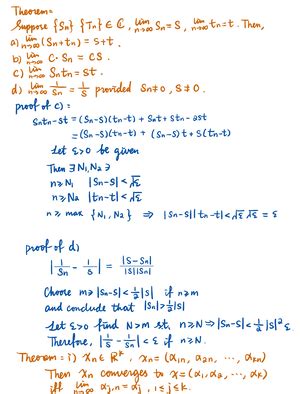 Theorem:
Suppose {Sn} {Tn} ∈ ℂ, lim n→∞ Sn = S, lim n→∞ tn = t. Then,
a) lim n→∞ (Sn + tn) = S + t.
b) lim n→∞ C·Sn = CS.
c) lim n→∞ Sntn = St.
d) lim n→∞ 1/Sn = 1/S provided Sn ≠ 0, S ≠ 0.
proof of c):
Sntn - St = (Sn-S)(tn-t) + Snt + Stn - 2St
= (Sn-S)(tn-t) + (Sn-S)t + S(tn-t)
Let ε>0 be given
Then ∃ N1, N2 ∋
n ≥ N1 |Sn-S| < √ε
n ≥ N2 |tn-t| < √ε
n ≥ max {N1, N2} ⇒ |Sn-S||tn-t| < √ε √ε = ε
proof of d)
|1/Sn - 1/S| = |S-Sn|/|S||Sn|
Choose m ∋ |Sn-S| < 1/2|S| if n ≥ m
and conclude that |Sn| > 1/2|S|
Let ε>0 find N>m st. n ≥ N ⇒ |Sn-S| < 1/2|S|² ε
Therefore, |1/Sn - 1/S| < ε if n ≥ N
Theorem: i) Xn ∈ ℝᵏ, Xn = (α1n, α2n, ···, αkn)
Then Xn converges to X = (α1, α2, ···, αk)
iff lim n→∞ αj,n = αj, 1 ≤ j ≤ k.